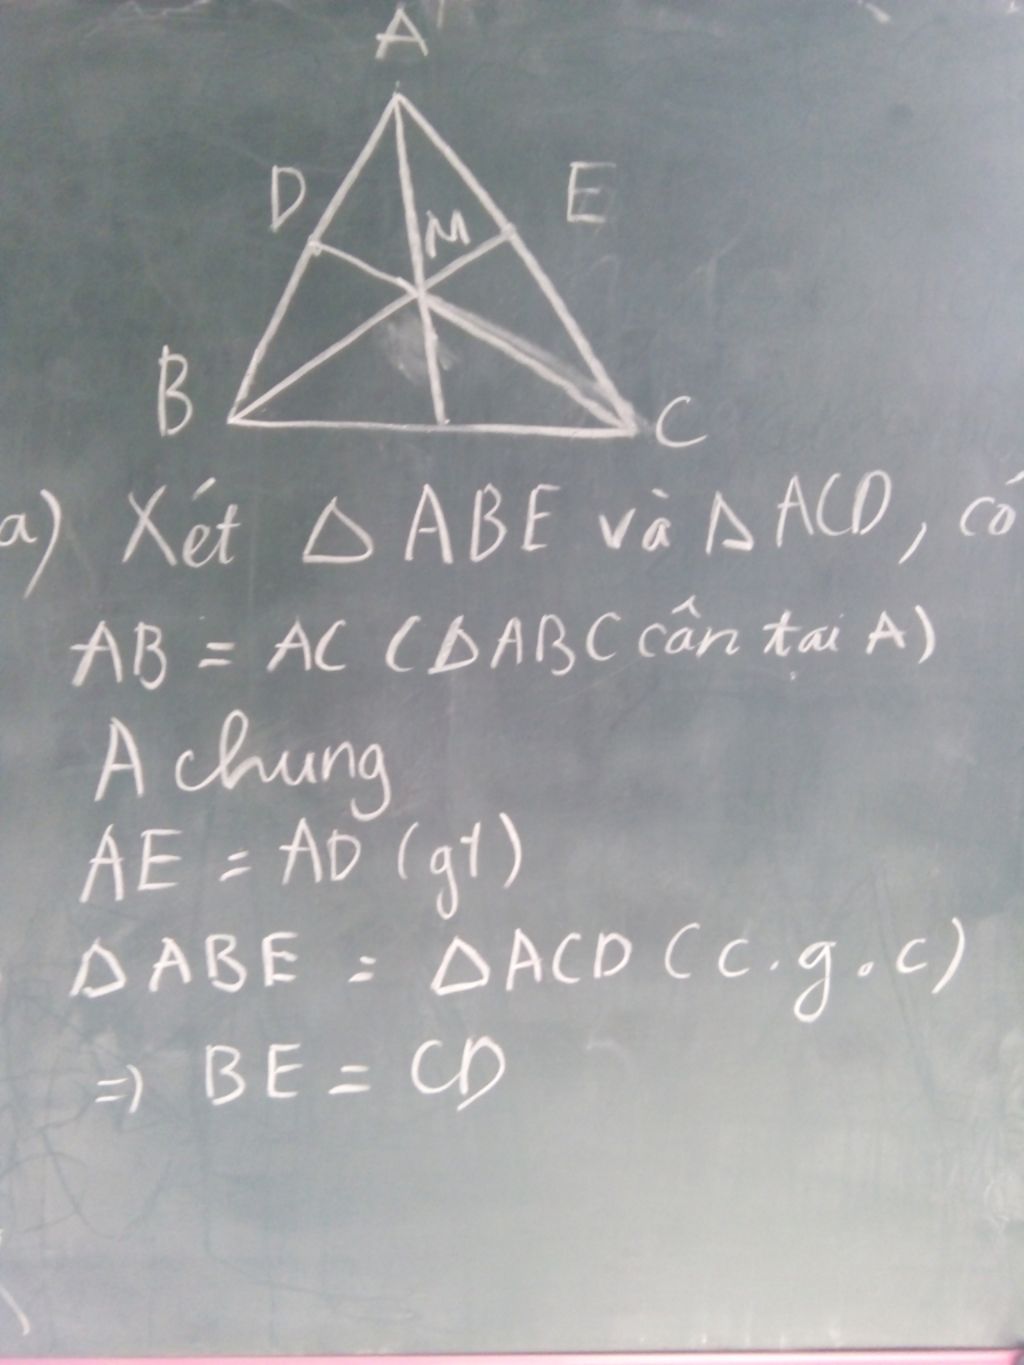 A
D
E
M
B
C
a) Xét Δ ABE và Δ ACD, có
AB = AC (Δ ABC cân tại A)
A chung
AE = AD (gt)
Δ ABE = Δ ACD (c.g.c)
=> BE = CD